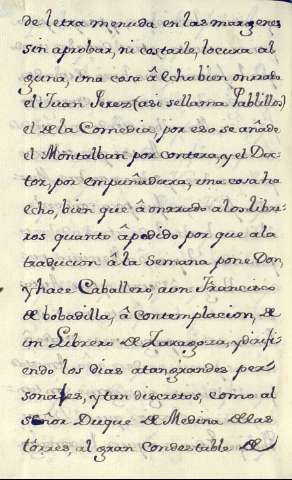 de letra menuda en las margenes
sin aprobar, ni costarle, locura al
guna, una cosa â echo bien onrrada
el Juan Perez (asi sellama Pablillos)
el de la Comedia, por eso se añade
el Montalban por contera, y el Doc-
tor, por empuñadura, una cosa ha
echo, bien que â onrrado alos libre-
ros quanto âpodido por que ala
traducion â la Semana pone Don,
y hace Caballero, aun Francisco
de bobadilla, â contemplacion, de
un Librero de Zaragoza, y diriji-
endo los dias atan grandes per
sonajes, y tan discretos, como al
señor Duque de Medina delas
tôrres al gran Condestable de